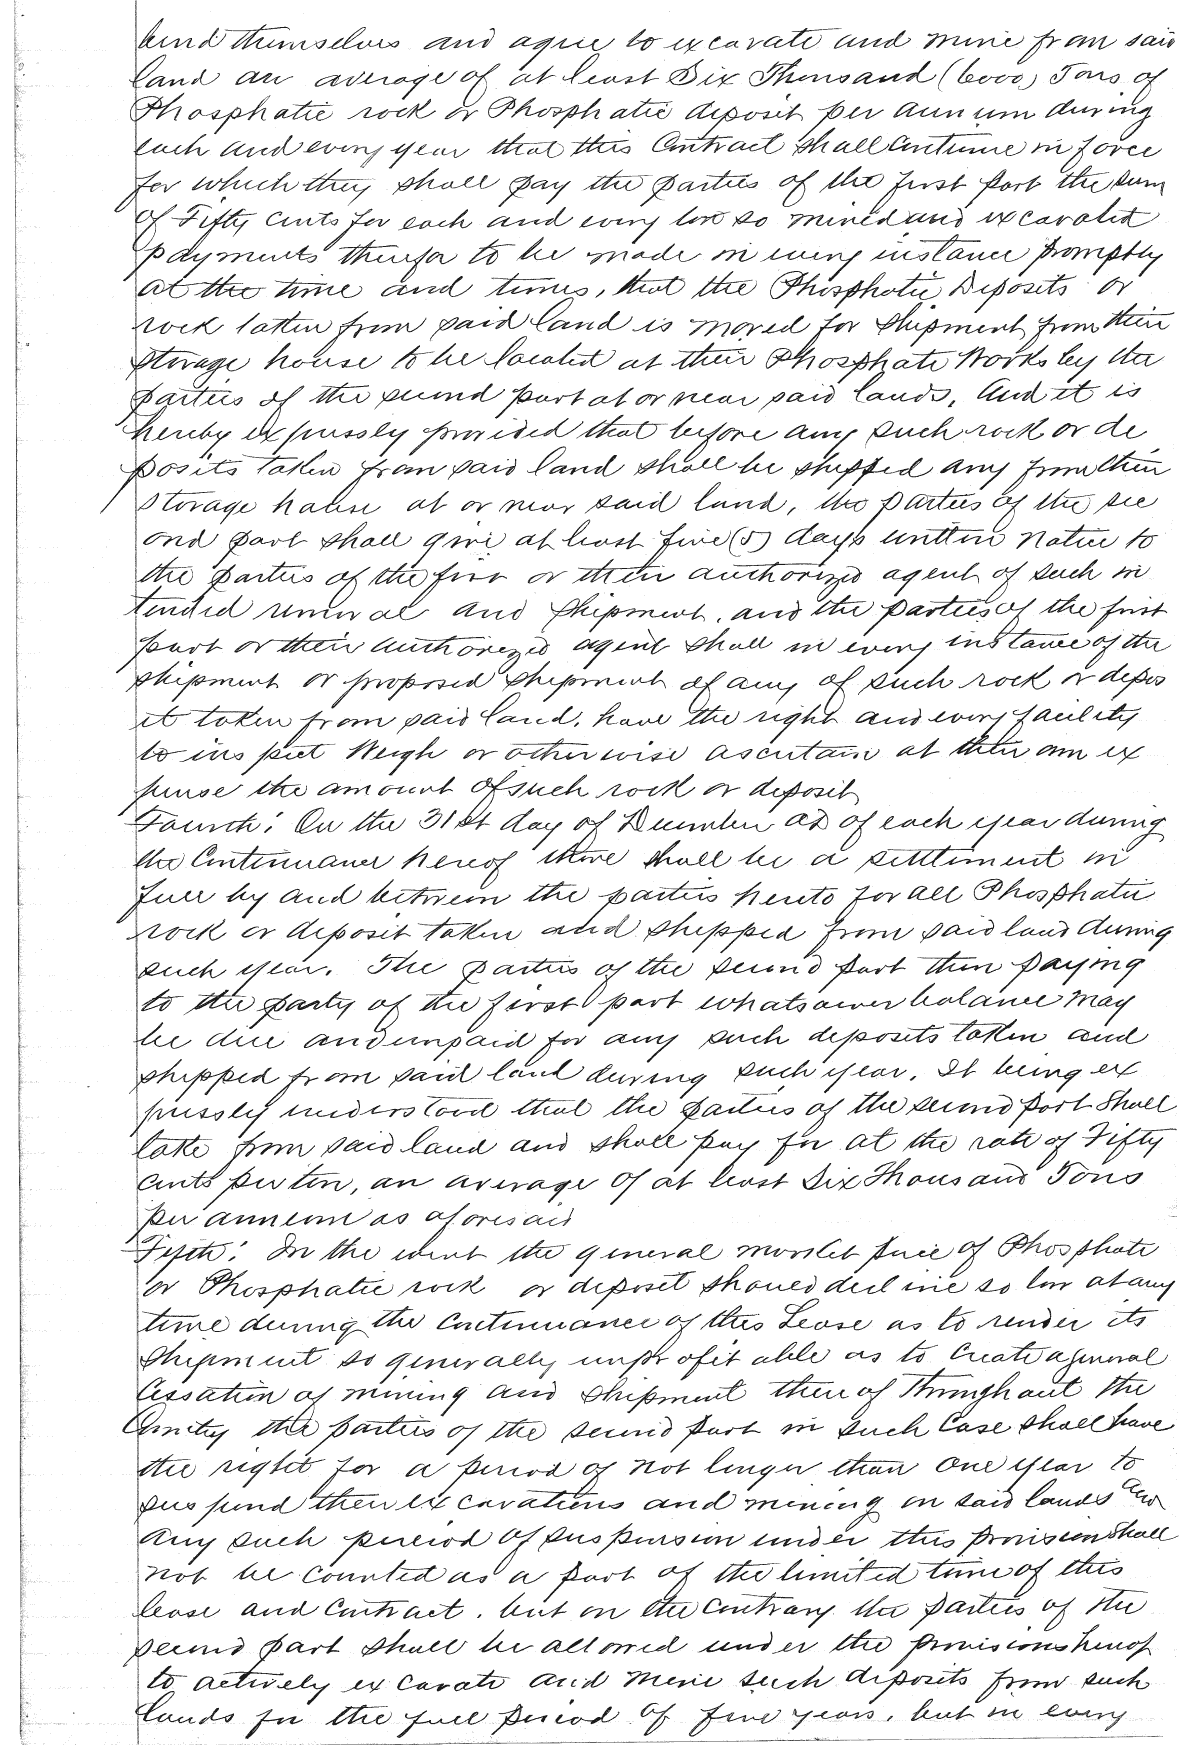 bind themselves and agree to excavate and mine from said
land an average of at least Six Thousand (6000) Tons of
Phosphatic rock or Phosphatic deposit per annum during
each and every year that this Contract shall Continue in force
for which they shall pay the parties of the first part the sum
of Fifty cents for each and every ton so mined and excavated
payments therefor to be made in every instance promptly
at the time and times, that the Phosphatic Deposits or
rock taken from said land is moved for shipment from their
storage house to be located at their Phosphate Works by the
parties of the second part at or near said lands, And it is
hereby expressly provided that before any such rock or de
posits taken from said land shall be shipped any from their
storage house at or near said land, the parties of the sec
ond part shall give at least five (5) days written notice to
the parties of the first or their authorized agent of such in
tended removal and shipment, and the parties of the first
part or their authorized agent shall in every instance of the
shipment or proposed shipment of any of such rock or depos
it taken from said land, have the right and every facility
to inspect Weigh or otherwise ascertain at their own ex
pense the amount of such rock or deposit
Fourth: On the 31st day of December AD of each year during
the Continuance hereof there shall be a settlement in
full by and between the parties hereto for all Phosphatic
rock or deposit taken and shipped from said land during
such year. The parties of the second part then paying
to the party of the first part whatsoever balance may
be due and unpaid for any such deposits taken and
shipped from said land during such year. It being ex
pressly understood that the parties of the second part shall
take from said land and shall pay for at the rate of Fifty
cents per ton, an average of at least Six Thousand Tons
per annum as aforesaid
Fifth: In the event the general market price of Phosphate
or Phosphatic rock or deposit should decline so low at any
time during the continuance of this Lease as to render its
shipment so generally unprofitable as to create a general
Cessation of mining and shipment thereof throughout the
County the parties of the second part in such Case shall have
the right for a period of not longer than one year to
suspend their excavations and mining on said lands
any such period of suspension under this provision shall
not be counted as a part of the limited time of this
lease and contract, but on the contrary the parties of the
second part shall be allowed under the provisions hereof
to actively excavate and mine such deposits from such
lands for the full period of five years, but in every